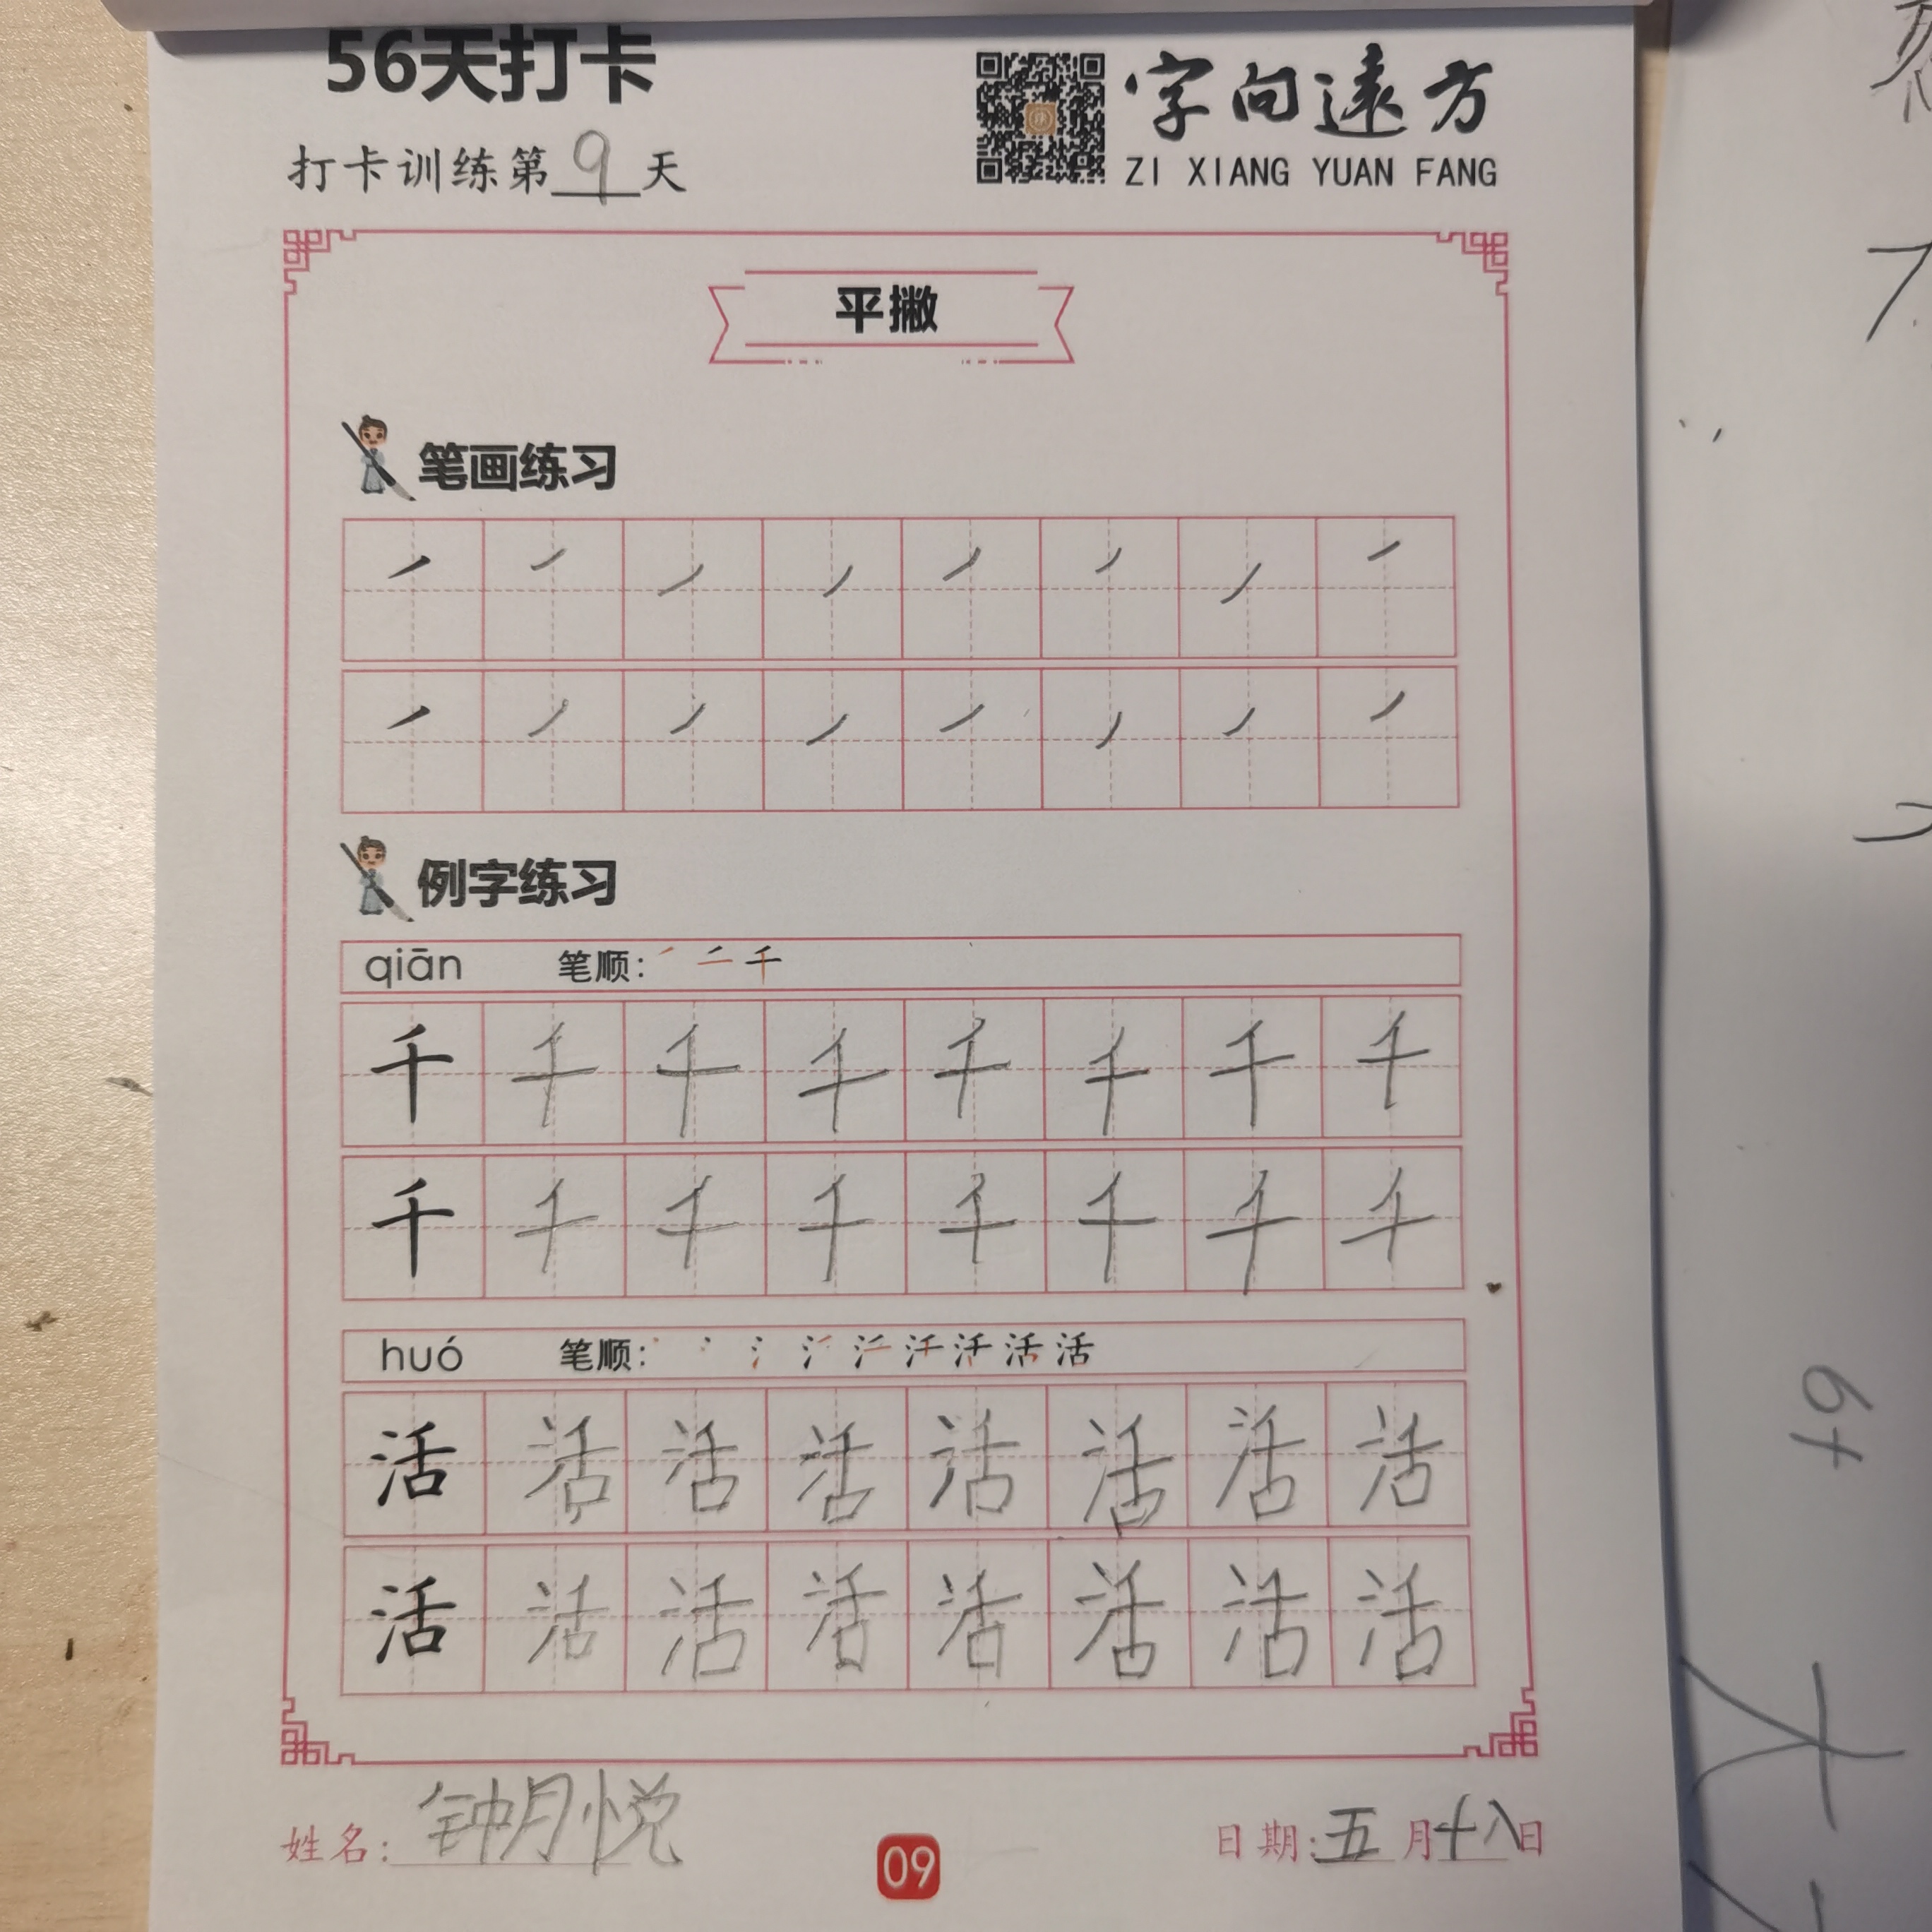 56天打卡
字向遠方
打卡训练第9天
ZI XIANG YUAN FANG
平撇
笔画练习
例字练习
qiān 笔顺：
千 千 千 千 千 千 千 千
千 千 千 千 千 千 千 千
huó 笔顺：
活 活 活 活 活 活 活 活
活 活 活 活 活 活 活 活
姓名：钟月悦
09
日期：五月十八日